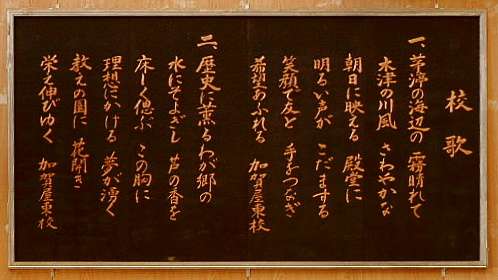 校歌
一、茅渟の海辺の 霧晴れて
木津の川風 さわやかな
朝日に映える 殿堂に
明るい声が こだまする
笑顔で友と 手をつなぎ
希望あふれる 加賀屋東校
二、歴史に薫るわが郷の
水にそよぎし 芦の香を
床しく偲ぶ この胸に
理想にかける 夢が湧く
教えの園に 花開き
栄え伸びゆく 加賀屋東校